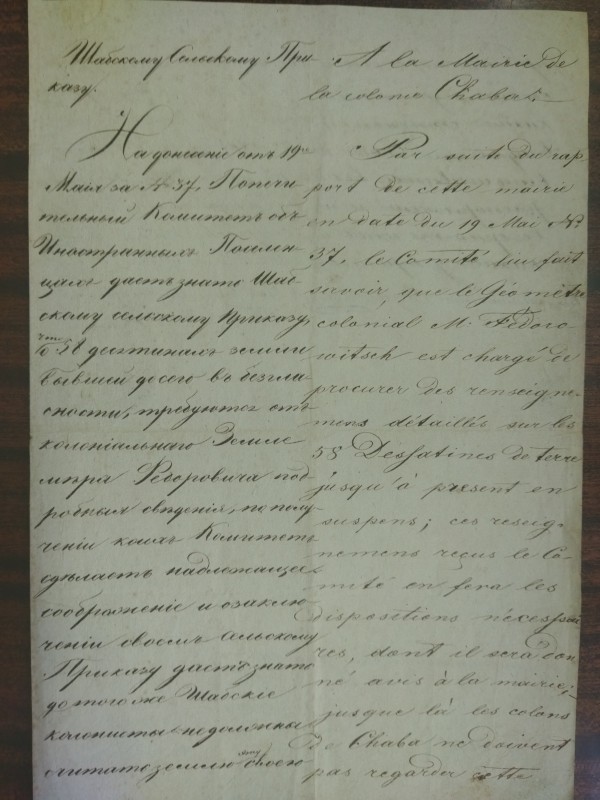 Шабскому Сельскому При-
казу.
На донесеніе отъ 19го
Маія за № 37, Попечи
тельный Комитетъ объ
Иностранныхъ Поселен-
цахъ даетъ знать Шаб-
скому сельскому Приказу,
что о 58 десятинахъ земли
бывшей досего въ безгла-
сности, требуются отъ
колоніальнаго Земле
мѣра Федоровича под-
робныя свѣденія, по полу-
ченіи коихъ Комитетъ
сдѣлаетъ надлежащее
соображеніе и о заклю-
ченіи своемъ Сельскому
Приказу дастъ знать
до того же Шабскіе
колонисты недолжны
считать землю своею
A la Mairie de
la colonie Chaba.
Par suite du rap-
port de cette mairie
en date du 19 Mai No
37, le Comité lui fait
savoir, que le Géomètre
colonial M. Fédoro
witsch est chargé de
procurer des renseigne-
mens détaillés sur les
58 Dessatines de terre
jusqu'à présent en
suspens; ces renseig-
nemens reçus le Co-
mité en fera les
dispositions nécessai
res, dont il sera don
né avis à la mairie;
jusque là les colons
de Chaba ne doivent
pas regarder cette